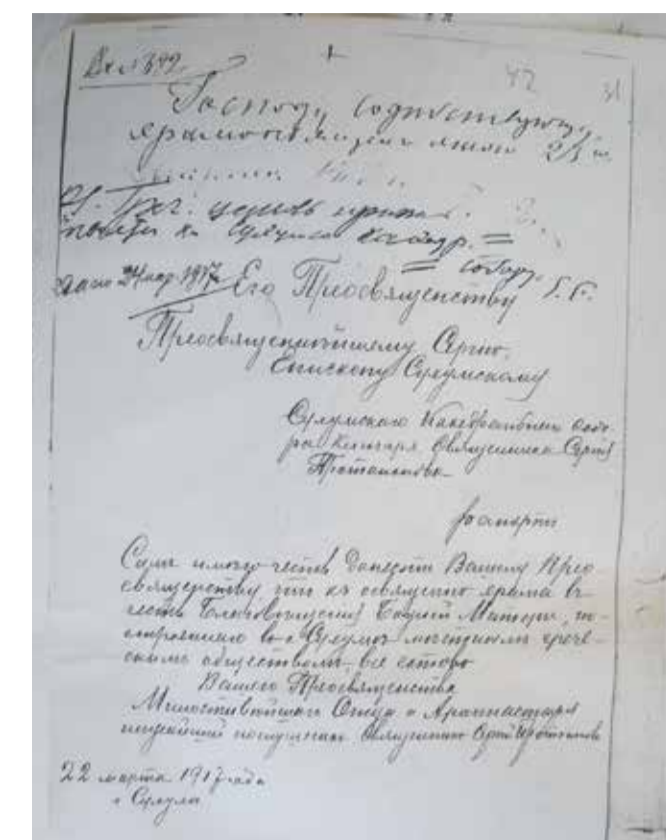 Вх № 392.
42 31
Господу содѣйствующу,
2/3 м.
Гр. церковь
къ Сухумск. Каѳедр.
Собору. Е. С.
24 мар. 1917 Его Преосвященству
Преосвященнѣйшему Сергію,
Епископу Сухумскому
Сухумскаго Каѳедральнаго Собо-
ра Ключаря Священника Сергія
Протопопова
рапортъ
Симъ имѣю честь донести Вашему Прео-
священству что къ освященію храма въ
честь Благовѣщенія Божіей Матери, по-
строеннаго въ г. Сухумѣ мѣстнымъ грече-
скимъ обществомъ, все готово
Вашего Преосвященства
Милостивѣйшаго Отца и Архипастыря
нижайшій послушникъ Священникъ Сергій Протопоповъ
22 марта 1917 года
г. Сухумъ